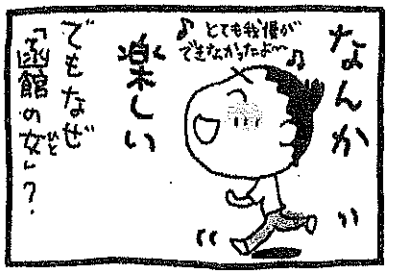 なんか
♪とても我慢が
できなかったよ〜♪
楽しい
でもなぜ
「函館の女」?
ひと